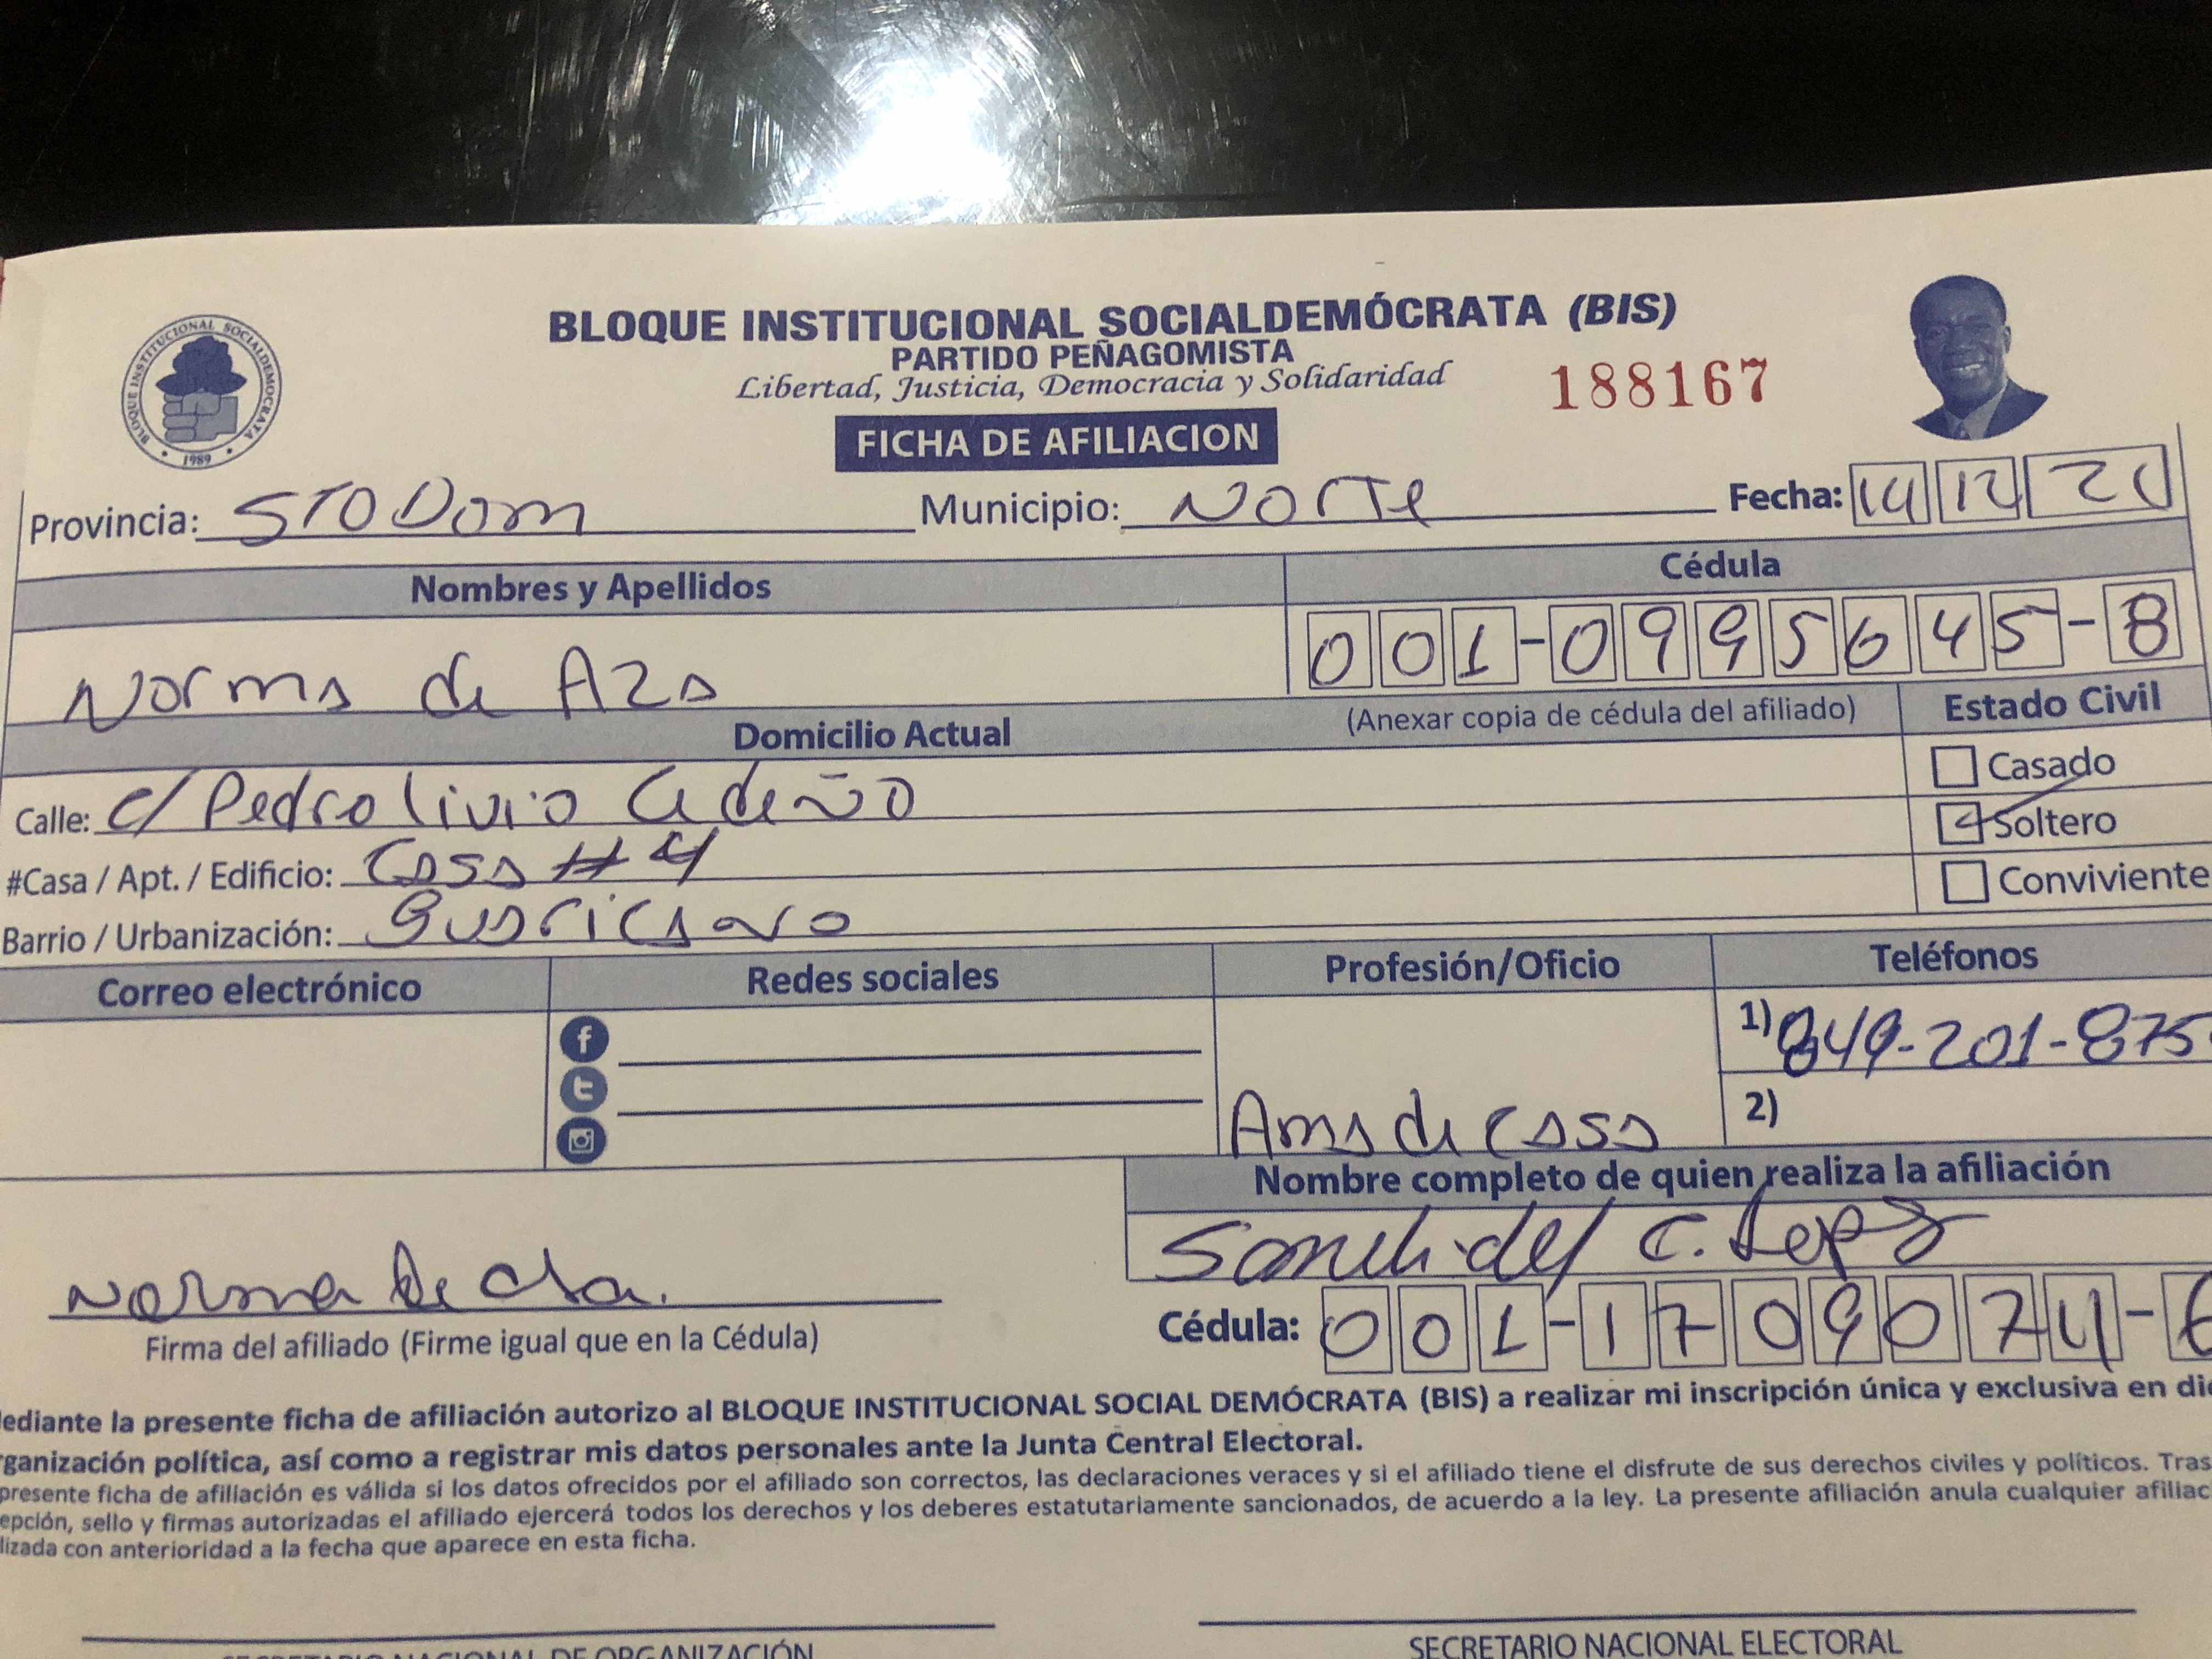 BLOQUE INSTITUCIONAL SOCIALDEMÓCRATA (BIS)
PARTIDO PEÑAGOMISTA
Libertad, Justicia, Democracia y Solidaridad
188167
BLOQUE INSTITUCIONAL SOCIALDEMOCRATA
1989
FICHA DE AFILIACION
Provincia: STO Dom Municipio: Norte Fecha: 14 12 21
Nombres y Apellidos Cédula
Norma de Aza 001-0995645-8
Domicilio Actual (Anexar copia de cédula del afiliado) Estado Civil
Casado
Calle: c/ Pedro livio Cedeño
Soltero
#Casa / Apt. / Edificio: Casa #4
Conviviente
Barrio / Urbanización: Guaricano
Correo electrónico Redes sociales Profesión/Oficio Teléfonos
1) 849-201-875
2)
Ama de Casa
Nombre completo de quien realiza la afiliación
del C.
Norma de
Firma del afiliado (Firme igual que en la Cédula)
Cédula: 001-1709074-6
ediante la presente ficha de afiliación autorizo al BLOQUE INSTITUCIONAL SOCIAL DEMÓCRATA (BIS) a realizar mi inscripción única y exclusiva en di
ganización política, así como a registrar mis datos personales ante la Junta Central Electoral.
presente ficha de afiliación es válida si los datos ofrecidos por el afiliado son correctos, las declaraciones veraces y si el afiliado tiene el disfrute de sus derechos civiles y políticos. Tras
epción, sello y firmas autorizadas el afiliado ejercerá todos los derechos y los deberes estatutariamente sancionados, de acuerdo a la ley. La presente afiliación anula cualquier afiliac
lizada con anterioridad a la fecha que aparece en esta ficha.
SECRETARIO NACIONAL DE ORGANIZACIÓN SECRETARIO NACIONAL ELECTORAL